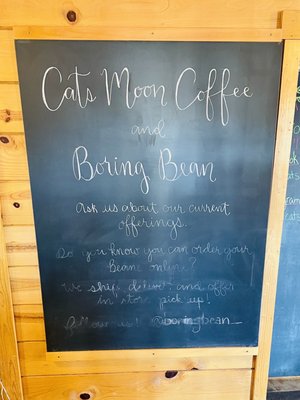 Cats Moon Coffee
and
Boring Bean
Ask us about our current
offerings.
Do you know you can order your
Beans online?
We ship, deliver, and offer
in store pick up!
Follow us! @boringbean_